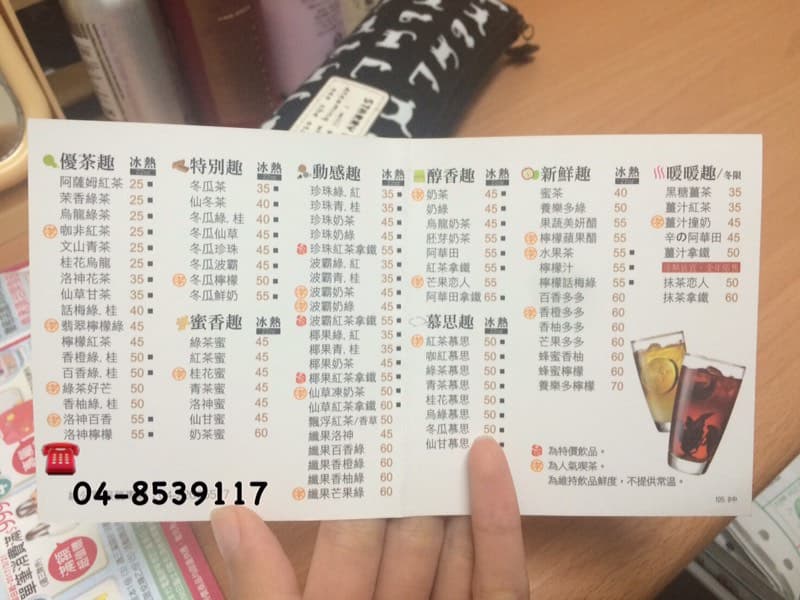 優茶趣 冰 熱
阿薩姆紅茶 25 ■
茉香綠茶 25 ■
烏龍綠茶 25 ■
咖非紅茶 25 ■
文山青茶 25 ■
桂花烏龍 25 ■
洛神花茶 35 ■
仙草甘茶 35 ■
話梅綠, 桂 40 ■
翡翠檸檬綠 45
檸檬紅茶 45
香橙綠, 桂 50 ■
百香綠, 桂 50 ■
綠茶好芒 50
香柚綠, 桂 50
洛神百香 55 ■
洛神檸檬 55 ■
特別趣 冰 熱
冬瓜茶 35 ■
仙冬茶 40 ■
冬瓜綠, 桂 40 ■
冬瓜仙草 45 ■
冬瓜珍珠 45 ■
冬瓜波霸 45 ■
冬瓜檸檬 50 ■
冬瓜鮮奶 55 ■
蜜香趣 冰 熱
綠茶蜜 45
紅茶蜜 45
桂花蜜 45
青茶蜜 45
洛神蜜 45
仙甘蜜 45
奶茶蜜 60
動感趣 冰 熱
珍珠綠, 紅 35 ■
珍珠青, 桂 35 ■
珍珠奶綠 45 ■
珍珠奶茶 45 ■
珍珠紅茶拿鐵 55 ■
波霸綠, 紅 35 ■
波霸青, 桂 35 ■
波霸奶茶 45 ■
波霸奶綠 45 ■
波霸紅茶拿鐵 55 ■
椰果綠, 紅 35 ■
椰果青, 桂 35 ■
椰果奶茶 45 ■
椰果紅茶拿鐵 55 ■
仙草凍奶茶 50 ■
仙草紅茶拿鐵 60 ■
飄浮紅茶/香草 50
纖果洛神 45
纖果百香綠 60
纖果香橙綠 60
纖果香柚綠 60
纖果芒果綠 60
醇香趣 冰 熱
奶茶 45 ■
奶綠 45 ■
烏龍奶茶 45 ■
胚芽奶茶 55 ■
阿華田 55 ■
紅茶拿鐵 55 ■
芒果恋人 55
阿華田拿鐵 65 ■
慕思趣 冰 熱
紅茶慕思 50 ■
咖紅慕思 50 ■
綠茶慕思 50 ■
青茶慕思 50 ■
桂花慕思 50 ■
烏綠慕思 50 ■
冬瓜慕思 50 ■
仙甘慕思
新鮮趣 冰 熱
蜜茶 40 ■
養樂多綠 50
果蔬美妍醋 55
檸檬蘋果醋 55
水果茶 55 ■
檸檬汁 55 ■
檸檬話梅綠 55 ■
百香多多 60
香橙多多 60
香柚多多 60
芒果多多 60
蜂蜜香柚 60
蜂蜜檸檬 60
養樂多檸檬 70
暖暖趣/冬限
黑糖薑茶 35
薑汁紅茶 35
薑汁撞奶 45
辛の阿華田 45
薑汁拿鐵 50
抹茶恋人 50
抹茶拿鐵 60
為特價飲品。
為人氣喫茶。
為維持飲品鮮度，不提供常溫。
04-8539117